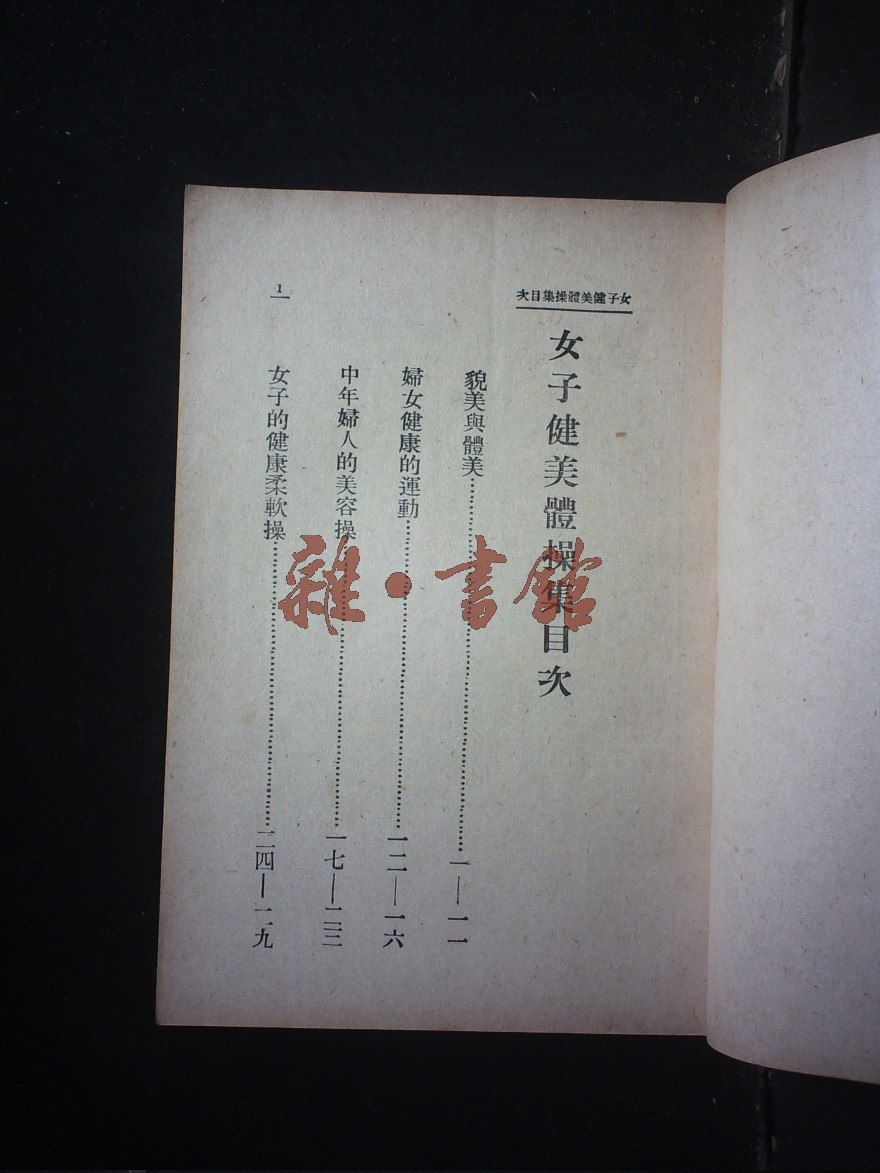 女子健美體操集目次
女子健美體操集目次
貌美與體美……一—一一
婦女健康的運動……一二—一六
中年婦人的美容操……一七—二三
女子的健康柔軟操……二四—二九
1
雜·書館